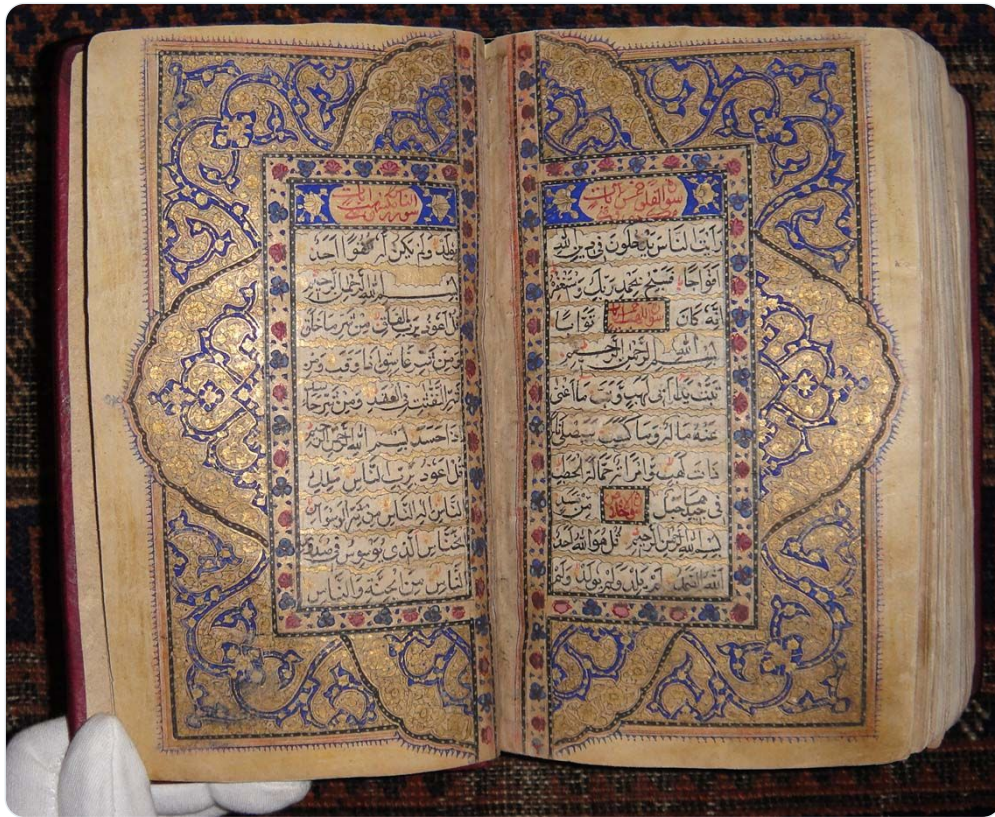 سورة الفلق خمس آيات
رَأَيْتَ النَّاسَ يَدْخُلُونَ فِي دِينِ اللهِ
أَفْوَاجًا فَسَبِّحْ بِحَمْدِ رَبِّكَ وَاسْتَغْفِرْهُ
إِنَّهُ كَانَ تَوَّابًا
بِسْمِ اللهِ الرَّحْمٰنِ الرَّحِيمِ
تَبَّتْ يَدَا أَبِي لَهَبٍ وَتَبَّ مَا أَغْنٰى
عَنْهُ مَالُهُ وَمَا كَسَبَ سَيَصْلٰى
ذَاتَ لَهَبٍ وَامْرَأَتُهُ حَمَّالَةَ الْحَطَبِ
فِي جِيدِهَا حَبْلٌ مِنْ مَسَدٍ
بِسْمِ اللهِ الرَّحْمٰنِ الرَّحِيمِ قُلْ هُوَ اللهُ أَحَدٌ
اللهُ الصَّمَدُ لَمْ يَلِدْ وَلَمْ يُولَدْ وَلَمْ
سورة الناس
وَلَمْ يَكُنْ لَهُ كُفُوًا أَحَدٌ
بِسْمِ اللهِ الرَّحْمٰنِ الرَّحِيمِ
قُلْ أَعُوذُ بِرَبِّ الْفَلَقِ مِنْ شَرِّ مَا خَلَقَ
وَمِنْ شَرِّ غَاسِقٍ إِذَا وَقَبَ وَمِنْ
شَرِّ النَّفّٰثٰتِ فِي الْعُقَدِ وَمِنْ شَرِّ حَا
إِذَا حَسَدَ بِسْمِ اللهِ الرَّحْمٰنِ الرَّحِيمِ
قُلْ أَعُوذُ بِرَبِّ النَّاسِ مَلِكِ
النَّاسِ إِلٰهِ النَّاسِ مِنْ شَرِّ الْوَسْوَاسِ
الْخَنَّاسِ الَّذِي يُوَسْوِسُ فِي صُدُورِ
النَّاسِ مِنَ الْجِنَّةِ وَالنَّاسِ